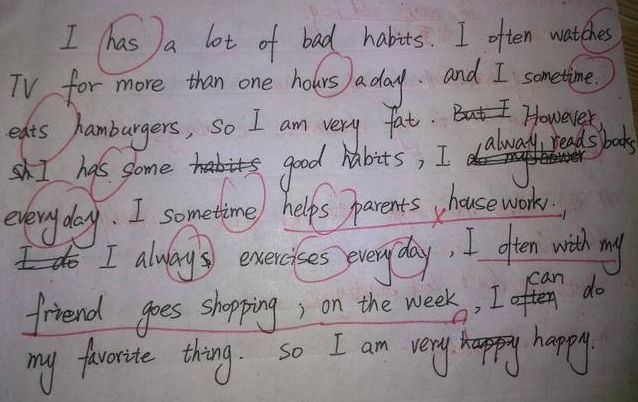 I has a lot of bad habits. I often watches
TV for more than one hours a day. and I sometime.
eats hamburgers, so I am very fat. But I However,
sh I has some habits good habits, I do my hower alway reads books
every day. I sometime helps parents housework.,
I do I always exercises every day, I often with my
friend goes shopping, on the week, I often can do
my favorite thing. so I am very happy happy.